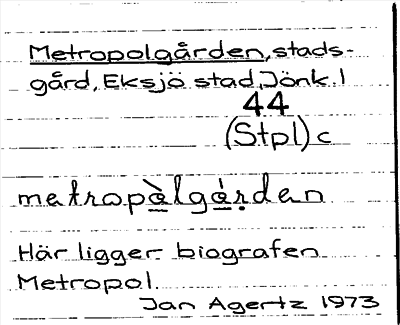 Metropolgården, stads-
gård, Eksjö stad, Jönk. l
44
(Stpl) c
metropὰlgạ́ṛden
Här ligger biografen
Metropol.
Jan Agertz 1973